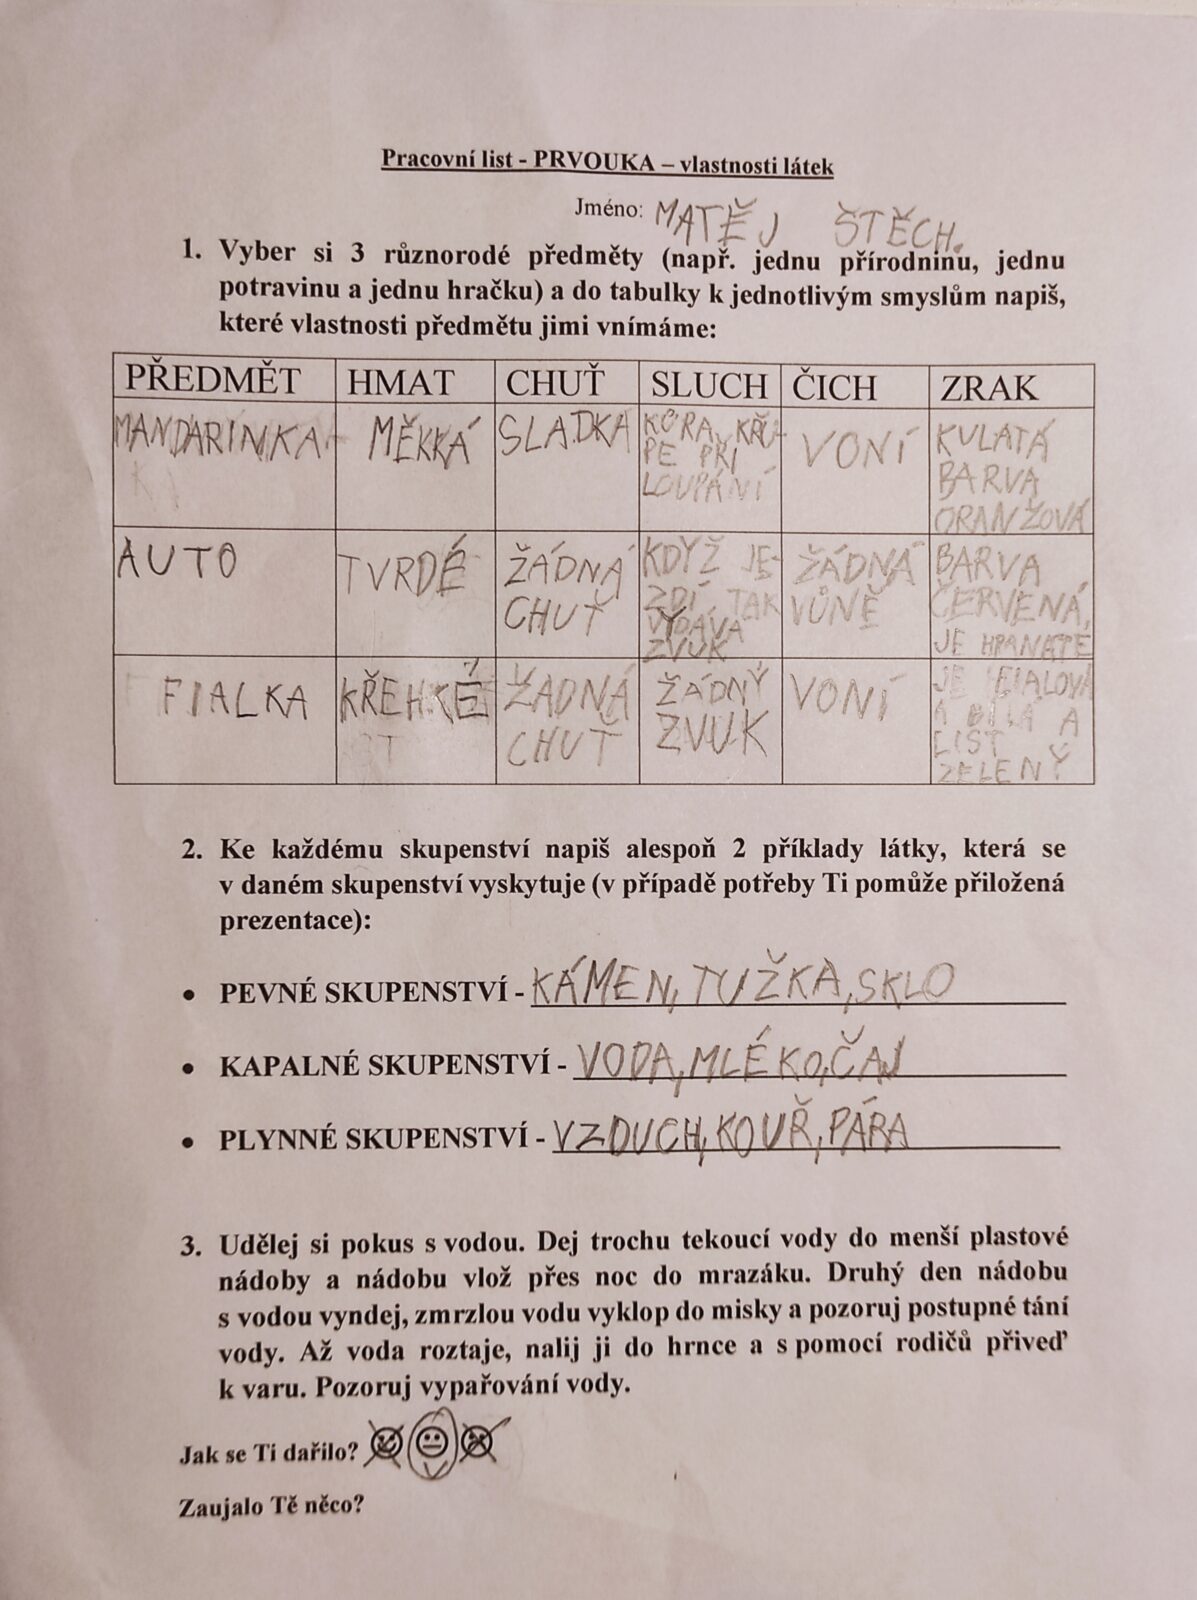 Pracovní list - PRVOUKA – vlastnosti látek
Jméno: MATĚJ ŠTĚCH.
1. Vyber si 3 různorodé předměty (např. jednu přírodninu, jednu
potravinu a jednu hračku) a do tabulky k jednotlivým smyslům napiš,
které vlastnosti předmětu jimi vnímáme:
PŘEDMĚT HMAT CHUŤ SLUCH ČICH ZRAK
MANDARINKA MĚKKÁ SLADKÁ KŮRA KŘU- VONÍ KULATÁ
PE PŘI BARVA
LOUPÁNÍ ORANŽOVÁ
AUTO TVRDÉ ŽÁDNÁ KDYŽ JE- ŽÁDNÁ BARVA
CHUŤ ZDÍ TAK VŮNĚ ČERVENÁ,
VYDÁVÁ JE HRANATÉ
ZVUK
FIALKA KŘEHKÉ ŽÁDNÁ ŽÁDNÝ VONÍ JE FIALOVÁ
CHUŤ ZVUK A BÍLÁ A
LIST
ZELENÝ
2. Ke každému skupenství napiš alespoň 2 příklady látky, která se
v daném skupenství vyskytuje (v případě potřeby Ti pomůže přiložená
prezentace):
• PEVNÉ SKUPENSTVÍ - KÁMEN, TUŽKA, SKLO
• KAPALNÉ SKUPENSTVÍ - VODA, MLÉKO, ČAJ
• PLYNNÉ SKUPENSTVÍ - VZDUCH, KOUŘ, PÁRA
3. Udělej si pokus s vodou. Dej trochu tekoucí vody do menší plastové
nádoby a nádobu vlož přes noc do mrazáku. Druhý den nádobu
s vodou vyndej, zmrzlou vodu vyklop do misky a pozoruj postupné tání
vody. Až voda roztaje, nalij ji do hrnce a s pomocí rodičů přiveď
k varu. Pozoruj vypařování vody.
Jak se Ti dařilo?
Zaujalo Tě něco?